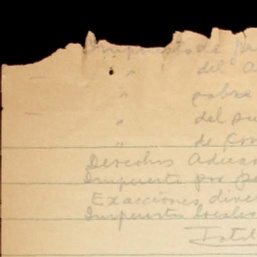 Impuesto de
" del
" sobre
" del
" de Con
Derechos Aduan
Impuesto por
Exacciones dive
Impuestos
Total